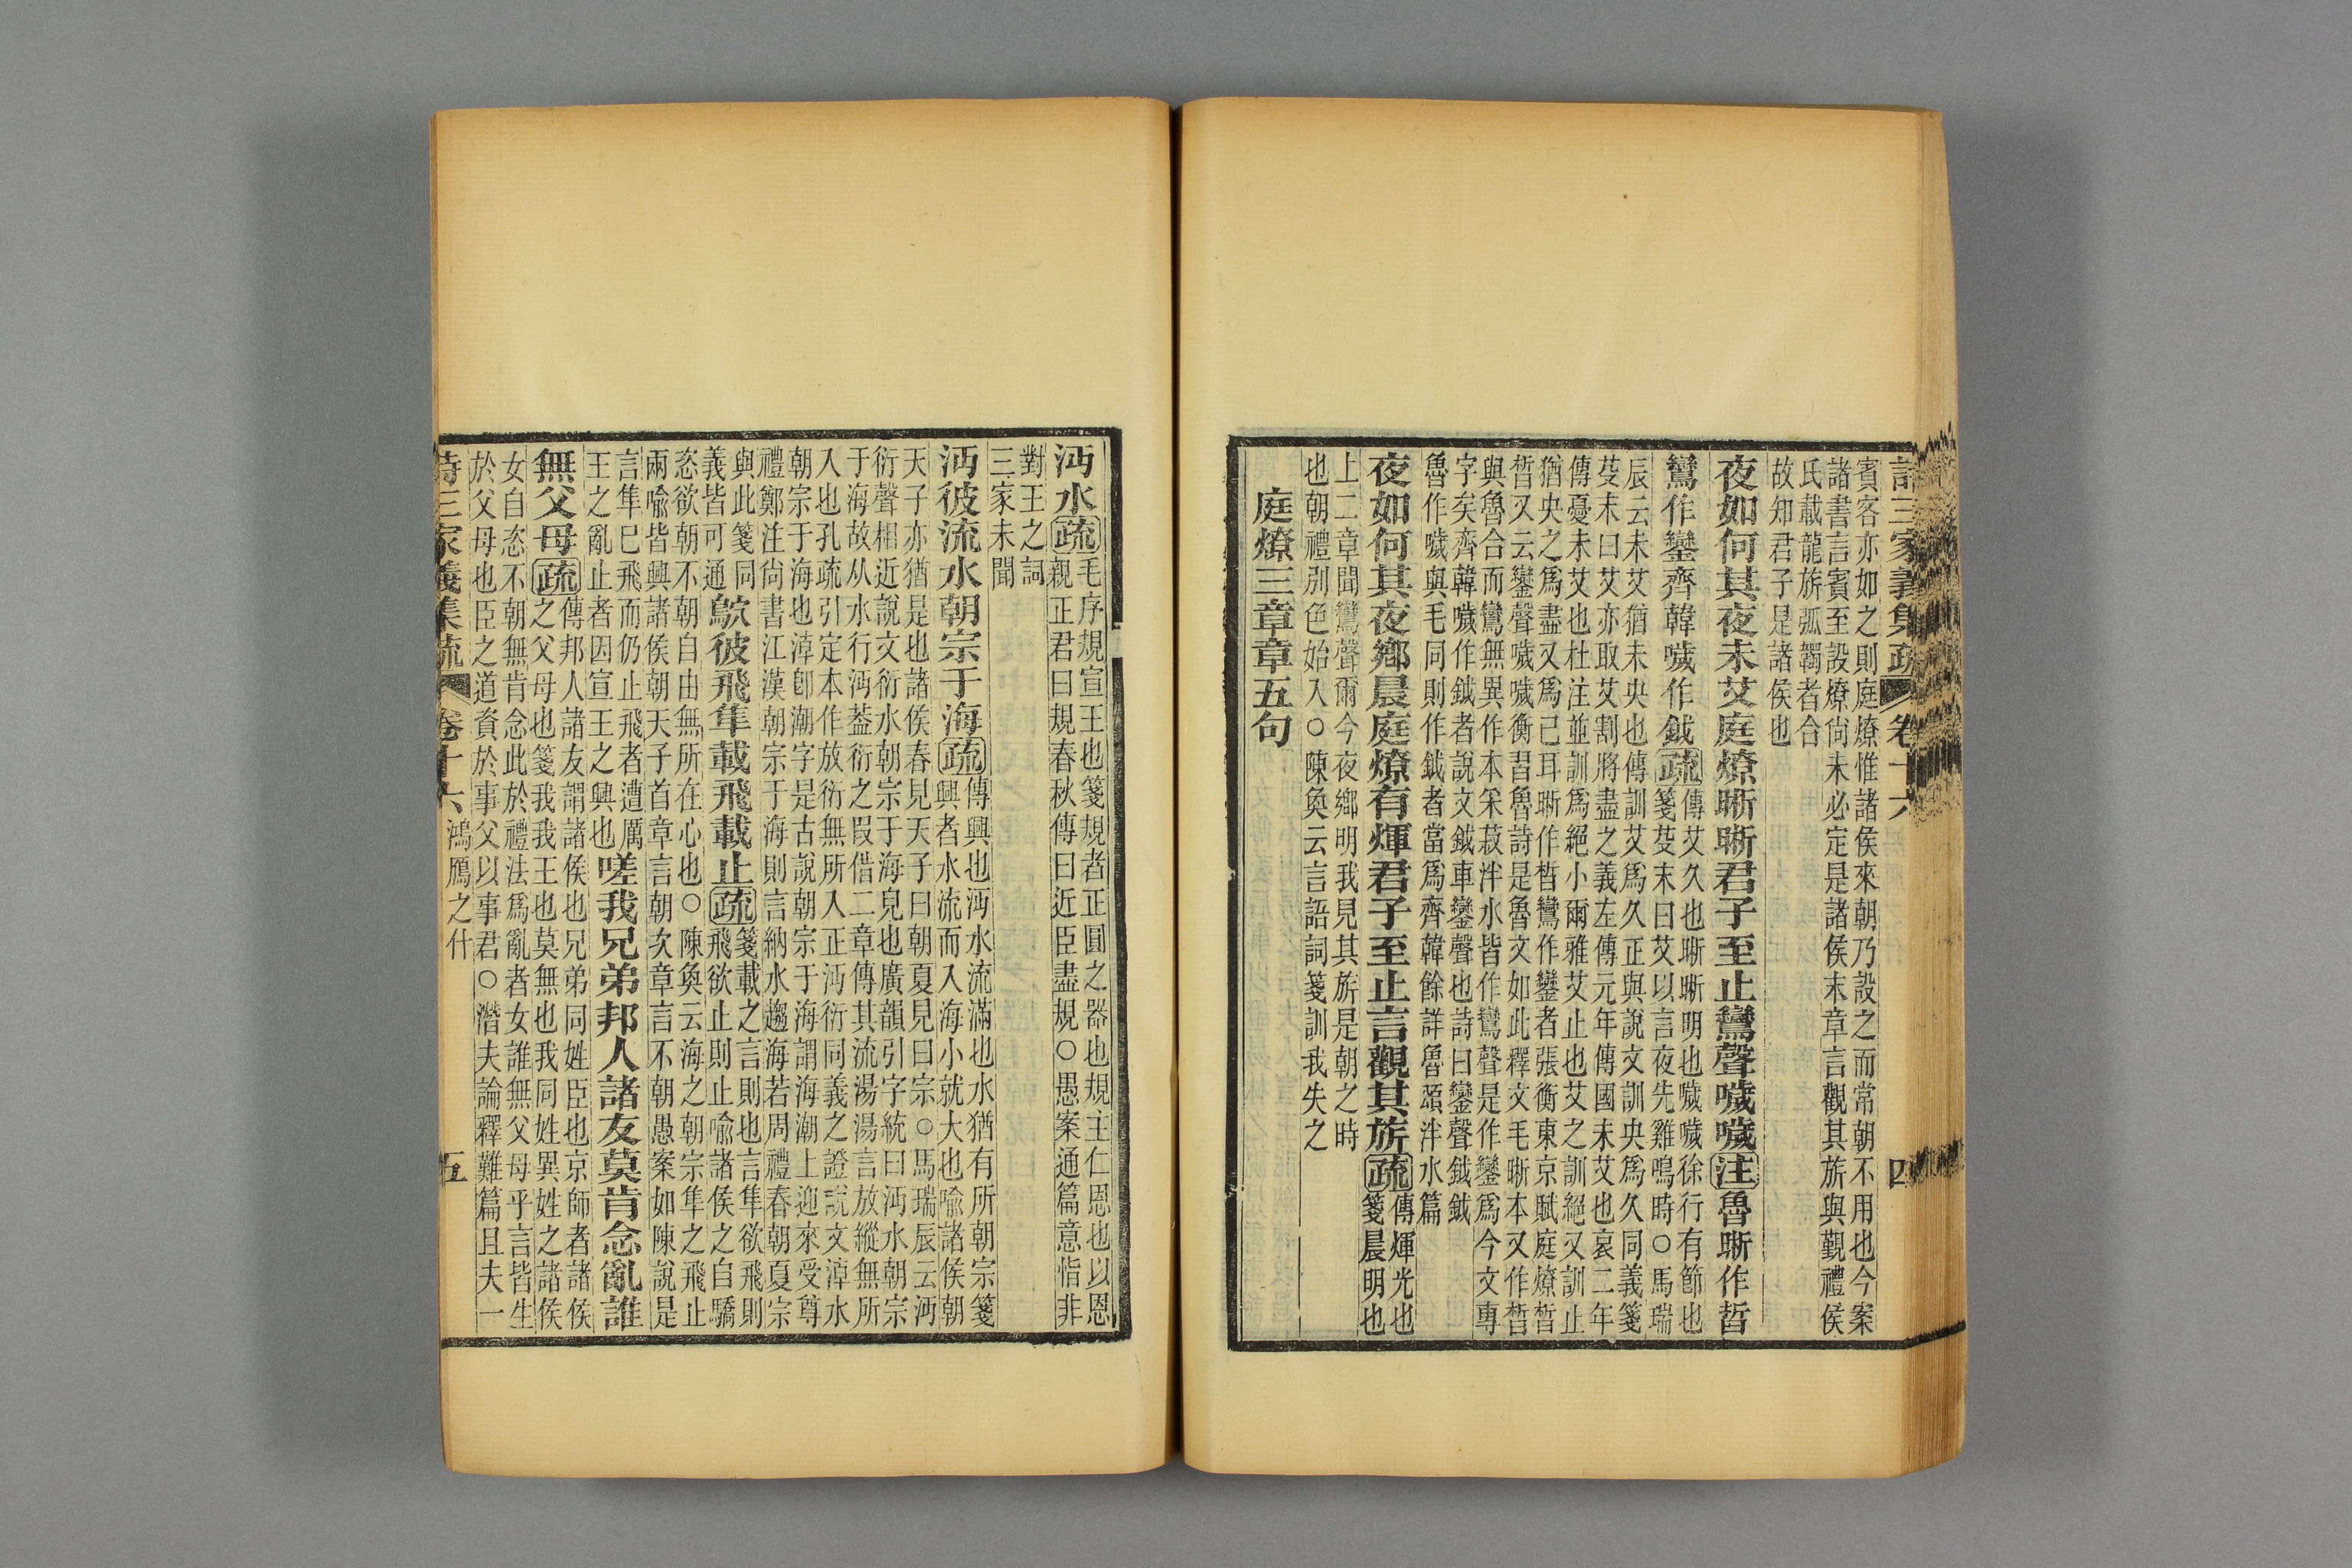 詩三家義集疏 卷十六 四
賓客亦如之則庭燎惟諸侯來朝乃設之而常朝不用也今案
諸書言賓至設燎尙未必定是諸侯末章言觀其旂與覲禮侯
氏載龍旂弧韣者合
故知君子是諸侯也
夜如何其夜未艾庭燎晣晣君子至止鸞聲噦噦注魯晣作晢
鸞作鑾齊韓噦作鉞疏
傳艾久也晣晣明也噦噦徐行有節也
箋芟末曰艾以言夜先雞鳴時○馬瑞
辰云未艾猶未央也傳訓艾爲久正與說文訓央爲久同義箋
芟末曰艾亦取艾割將盡之義左傳元年傳國未艾也哀二年
傳憂未艾也杜注並訓爲絕小爾雅艾止也艾之訓絕又訓止
猶央之爲盡又爲已耳晣作晢鸞作鑾者張衡東京賦庭燎晢
晢又云鑾聲噦噦衡習魯詩是魯文如此釋文毛晣本又作晢
與魯合而鸞無異作本采菽泮水皆作鸞聲是作鑾爲今文專
字矣齊韓噦作鉞者說文鉞車鑾聲也詩曰鑾聲鉞鉞
魯作噦與毛同則作鉞者當爲齊韓餘詳魯頌泮水篇
夜如何其夜鄉晨庭燎有煇君子至止言觀其旂疏
傳煇光也
箋晨明也
上二章聞鸞聲爾今夜鄉明我見其旂是朝之時
也朝禮別色始入○陳奐云言語詞箋訓我失之
庭燎三章章五句
沔水疏
毛序規宣王也箋規者正圓之器也規主仁恩也以恩
親正君曰規春秋傳曰近臣盡規○愚案通篇意恉非
對王之詞
三家未聞
沔彼流水朝宗于海疏
傳興也沔水流滿也水猶有所朝宗箋
興者水流而入海小就大也喻諸侯朝
天子亦猶是也諸侯春見天子曰朝夏見曰宗○馬瑞辰云沔
衍聲相近說文衍水朝宗于海皃也廣韻引字統曰沔水朝宗
于海故从水行沔葢衍之叚借二章傳其流湯湯言放縱無所
入也孔疏引定本作放衍無所入正沔衍同義之證說文淖水
朝宗于海也淖卽潮字是古說朝宗于海謂海潮上迎來受尊
禮鄭注尙書江漢朝宗于海則言納水趨海若周禮春朝夏宗
與此箋同
義皆可通
鴥彼飛隼載飛載止疏
箋載之言則也言隼欲飛則
飛欲止則止喻諸侯之自驕
恣欲朝不朝自由無所在心也○陳奐云海之朝宗隼之飛止
兩喻皆興諸侯朝天子首章言朝次章言不朝愚案如陳說是
言隼巳飛而仍止飛者遭厲
王之亂止者因宣王之興也
嗟我兄弟邦人諸友莫肯念亂誰
無父母疏
傳邦人諸友謂諸侯也兄弟同姓臣也京師者諸侯
之父母也箋我我王也莫無也我同姓異姓之諸侯
女自恣不朝無肯念此於禮法爲亂者女誰無父母乎言皆生
於父母也臣之道資於事父以事君○潛夫論釋難篇且夫一
詩三家義集疏 卷十六 鴻鴈之什 五